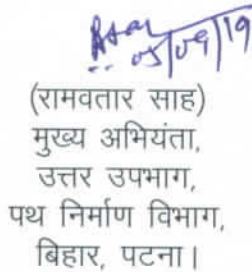 05/09/19
(रामवतार साह)
मुख्य अभियंता,
उत्तर उपभाग,
पथ निर्माण विभाग,
बिहार, पटना।